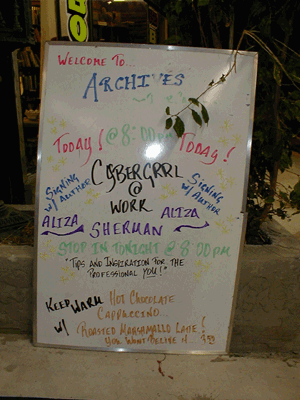 WELCOME TO...
ARCHIVES
TODAY! @ 8:00PM TODAY!
SIGNING W/ AUTHOR
CYBERGRRL
@
WORK
SIGNING W/ AUTHOR
ALIZA SHERMAN ALIZA
STOP IN TONIGHT @ 8:00PM
"TIPS AND INSPIRATION FOR THE
PROFESSIONAL YOU!"
KEEP WARM HOT CHOCOLATE
W/ CAPPUCCINO...
ROASTED MARSHMALLO LATTE!
YOU WON'T BELIVE IT